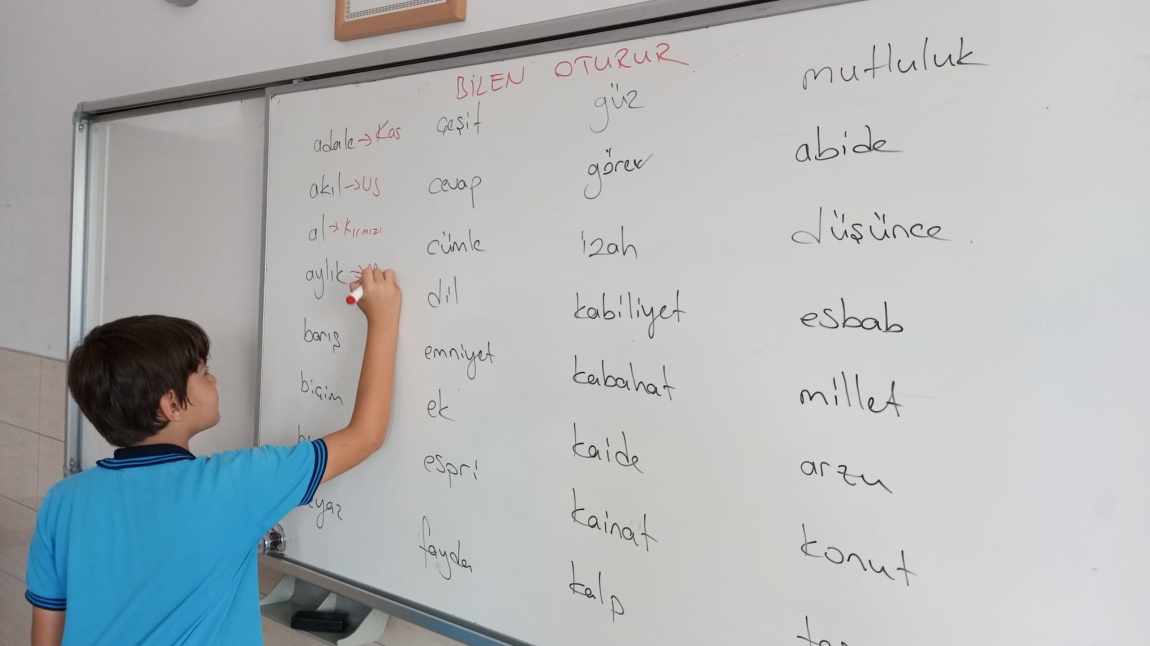 BİLEN OTURUR
adale → Kas
akıl → Us
al → Kırmızı
aylık →
barış
biçim
çeşit
cevap
cümle
dil
emniyet
ek
espri
fayda
güz
görev
izah
kabiliyet
kabahat
kaide
kainat
kalp
mutluluk
abide
düşünce
esbab
millet
arzu
konut